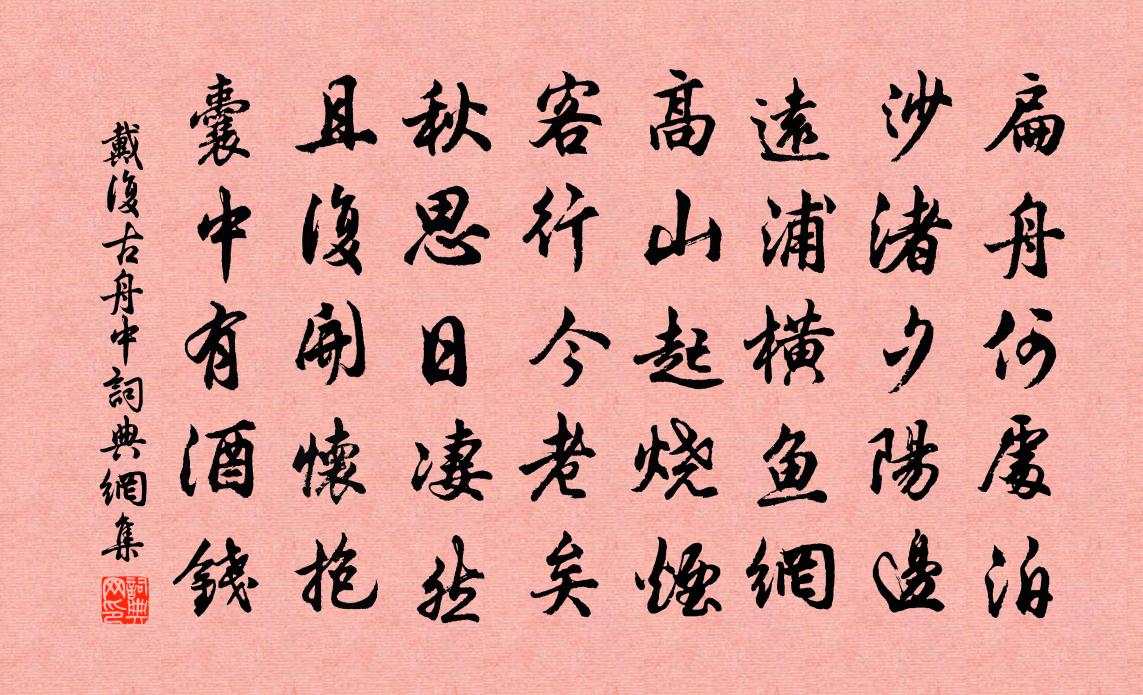 扁舟何處泊
沙渚夕陽邊
遠浦橫魚網
高山起燒煙
客行今老矣
秋思日凄然
且復開懷抱
囊中有酒錢
戴復古舟中詞典網集
詞典网印